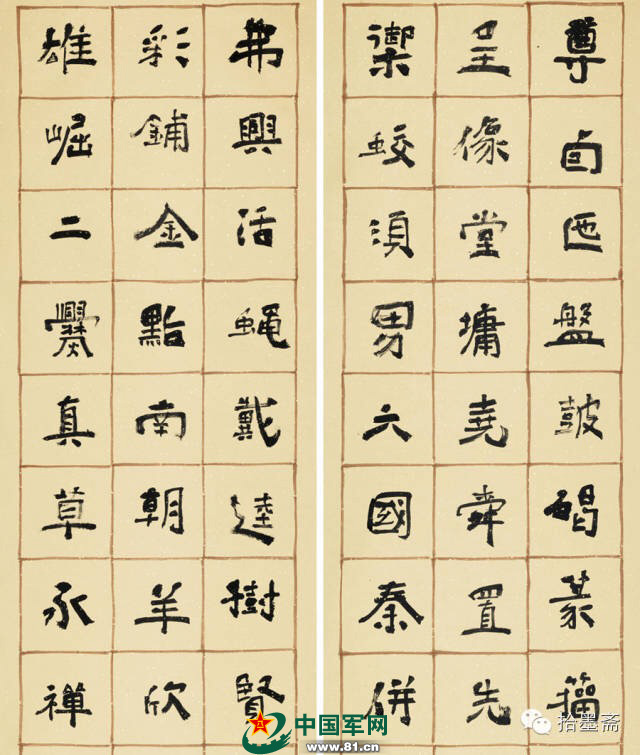 尊卣匜盤鼓碣篆籀
呈像堂墉堯舜置先
禦蛟須男六國秦併
弗興活蠅戴逵樹賢
彩鋪金點南朝羊欣
雄崛二爨真草永禪
中国军网
www.81.cn
拾墨斋